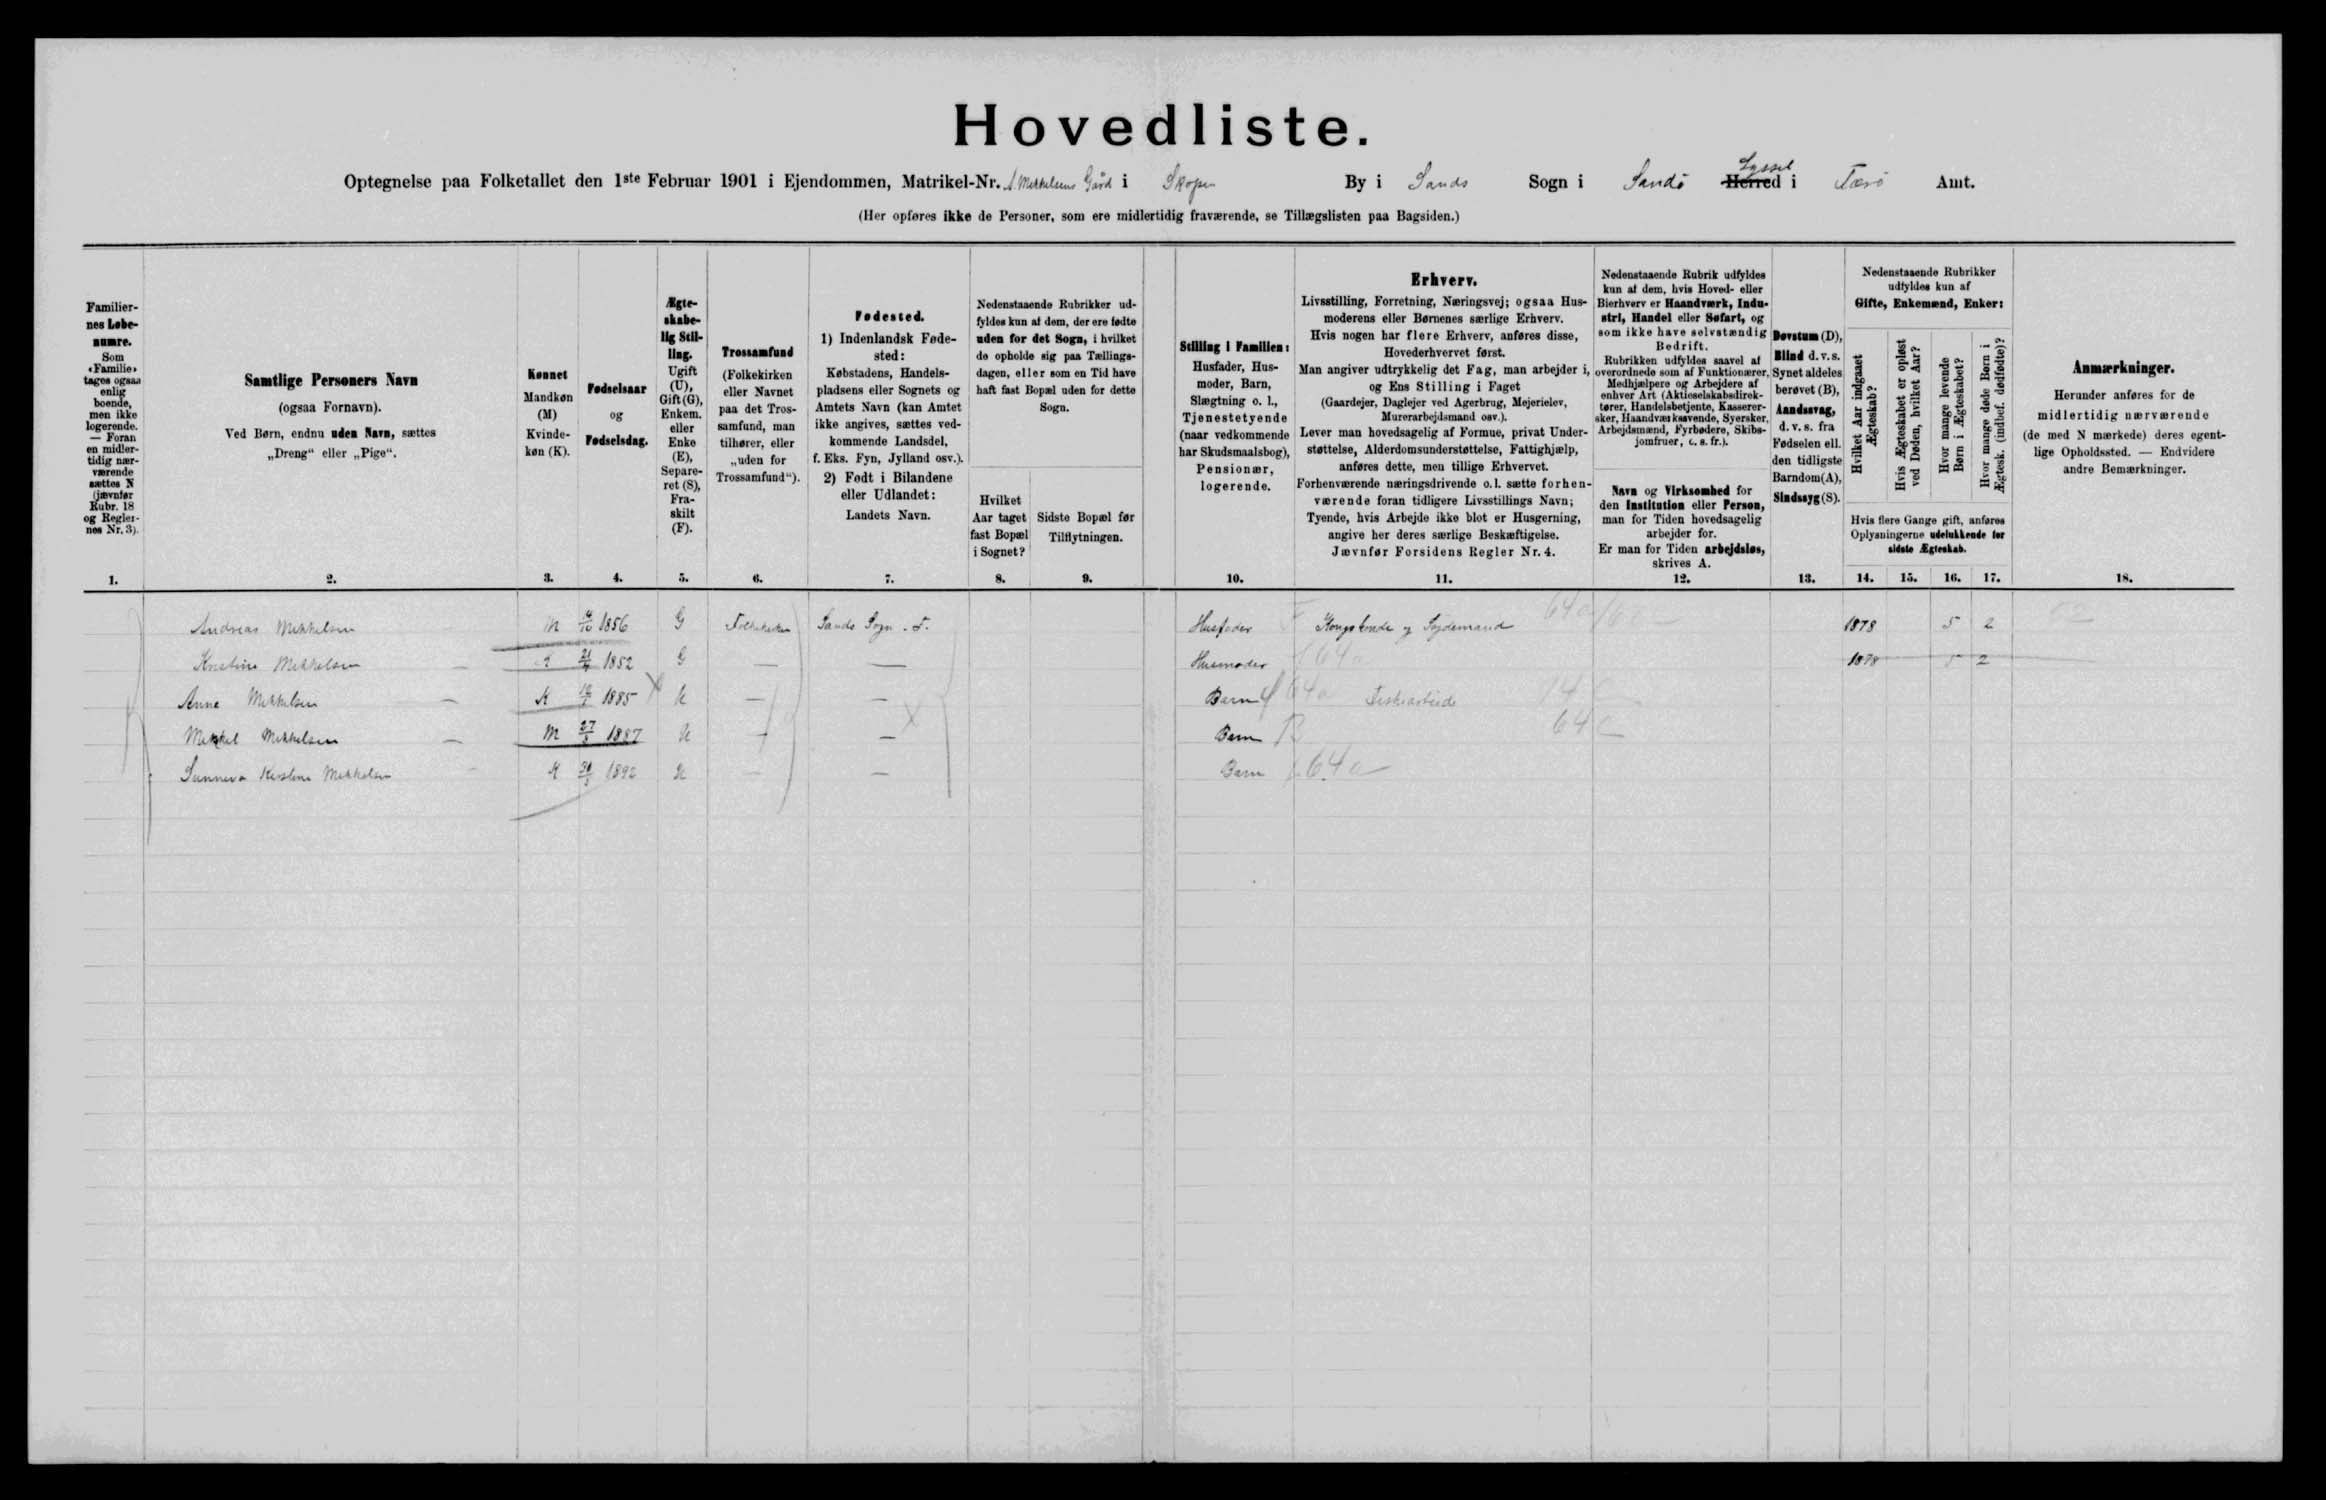 Hovedliste.
Optegnelse paa Folketallet den 1ste Februar 1901 i Ejendommen, Matrikel-Nr. A. Mikkelsens Gård i Skopen By i Sands Sogn i Sandö Syssel Herred i Færö Amt.
(Her opføres ikke de Personer, som ere midlertidig fraværende, se Tillægslisten paa Bagsiden.)
Familier-
nes Løbe-
numre.
Som
«Familie»
tages ogsaa
enlig
boende,
men ikke
logerende.
— Foran
en midler-
tidig nær-
værende
sættes N
(jævnfør
Rubr. 18
og Regler-
nes Nr. 3).
1.
Samtlige Personers Navn
(ogsaa Fornavn).
Ved Børn, endnu uden Navn, sættes
„Dreng“ eller „Pige“.
2.
Kønnet
Mandkøn
(M)
Kvinde-
køn (K).
3.
Fødselsaar
og
Fødselsdag.
4.
Ægte-
skabe-
lig Stil-
ling.
Ugift
(U),
Gift (G),
Enkem.
eller
Enke
(E),
Separe-
ret (S),
Fra-
skilt
(F).
5.
Trossamfund
(Folkekirken
eller Navnet
paa det Tros-
samfund, man
tilhører, eller
„uden for
Trossamfund“).
6.
Fødested.
1) Indenlandsk Føde-
sted:
Købstadens, Handels-
pladsens eller Sognets og
Amtets Navn (kan Amtet
ikke angives, sættes ved-
kommende Landsdel,
f. Eks. Fyn, Jylland osv.).
2) Født i Bilandene
eller Udlandet:
Landets Navn.
7.
Nedenstaaende Rubrikker ud-
fyldes kun af dem, der ere fødte
uden for det Sogn, i hvilket
de opholde sig paa Tællings-
dagen, eller som en Tid have
haft fast Bopæl uden for dette
Sogn.
Hvilket
Aar taget
fast Bopæl
i Sognet?
8.
Sidste Bopæl før
Tilflytningen.
9.
Stilling i Familien:
Husfader, Hus-
moder, Barn,
Slægtning o. l.,
Tjenestetyende
(naar vedkommende
har Skudsmaalsbog),
Pensionær,
logerende.
10.
Erhverv.
Livsstilling, Forretning, Næringsvej; ogsaa Hus-
moderens eller Børnenes særlige Erhverv.
Hvis nogen har flere Erhverv, anføres disse,
Hovederhvervet først.
Man angiver udtrykkelig det Fag, man arbejder i,
og Ens Stilling i Faget
(Gaardejer, Daglejer ved Agerbrug, Mejerielev,
Murerarbejdsmand osv.).
Lever man hovedsagelig af Formue, privat Under-
støttelse, Alderdomsunderstøttelse, Fattighjælp,
anføres dette, men tillige Erhvervet.
Forhenværende næringsdrivende o. l. sætte forhen-
værende foran tidligere Livsstillings Navn;
Tyende, hvis Arbejde ikke blot er Husgerning,
angive her deres særlige Beskæftigelse.
Jævnfør Forsidens Regler Nr. 4.
11.
Nedenstaaende Rubrik udfyldes
kun af dem, hvis Hoved- eller
Bierhverv er Haandværk, Indu-
stri, Handel eller Søfart, og
som ikke have selvstændig
Bedrift.
Rubrikken udfyldes saavel af
overordnede som af Funktionærer,
Medhjælpere og Arbejdere af
enhver Art (Aktieselskabsdirek-
tører, Handelsbetjente, Kasserer-
sker, Haandværkssvende, Syersker,
Arbejdsmænd, Fyrbødere, Skibs-
jomfruer, o. s. fr.).
Navn og Virksomhed for
den Institution eller Person,
man for Tiden hovedsagelig
arbejder for.
Er man for Tiden arbejdsløs,
skrives A.
12.
Døvstum (D),
Blind d. v. s.
Synet aldeles
berøvet (B),
Aandssvag,
d. v. s. fra
Fødselen ell.
den tidligste
Barndom (A),
Sindssyg (S).
13.
Nedenstaaende Rubrikker
udfyldes kun af
Gifte, Enkemænd, Enker:
Hvilket Aar indgaaet
Ægteskab?
Hvis Ægteskabet er opløst
ved Døden, hvilket Aar?
Hvor mange levende
Børn i Ægteskabet?
Hvor mange døde Børn i
Ægtesk. (indbef. dødfødte)?
Hvis flere Gange gift, anføres
Oplysningerne udelukkende for
sidste Ægteskab.
14. 15. 16. 17.
Anmærkninger.
Herunder anføres for de
midlertidig nærværende
(de med N mærkede) deres egent-
lige Opholdssted. — Endvidere
andre Bemærkninger.
18.
Andreas Mikkelsen M 1856 G Folkekirken Sands Sogn. F. Husfader Kongsbonde og Sysdemand 64a 1878 5 2
Kristine Mikkelsen K 1852 G — — Husmoder 64a 1878 5 2
Anne Mikkelsen — K 1885 U — — Barn 64a Fiskearbeide
Mikkel Mikkelsen — M 27 1887 U — — Barn 64
Sunneva Kirstine Mikkelsen K 1892 U — — Barn 64a